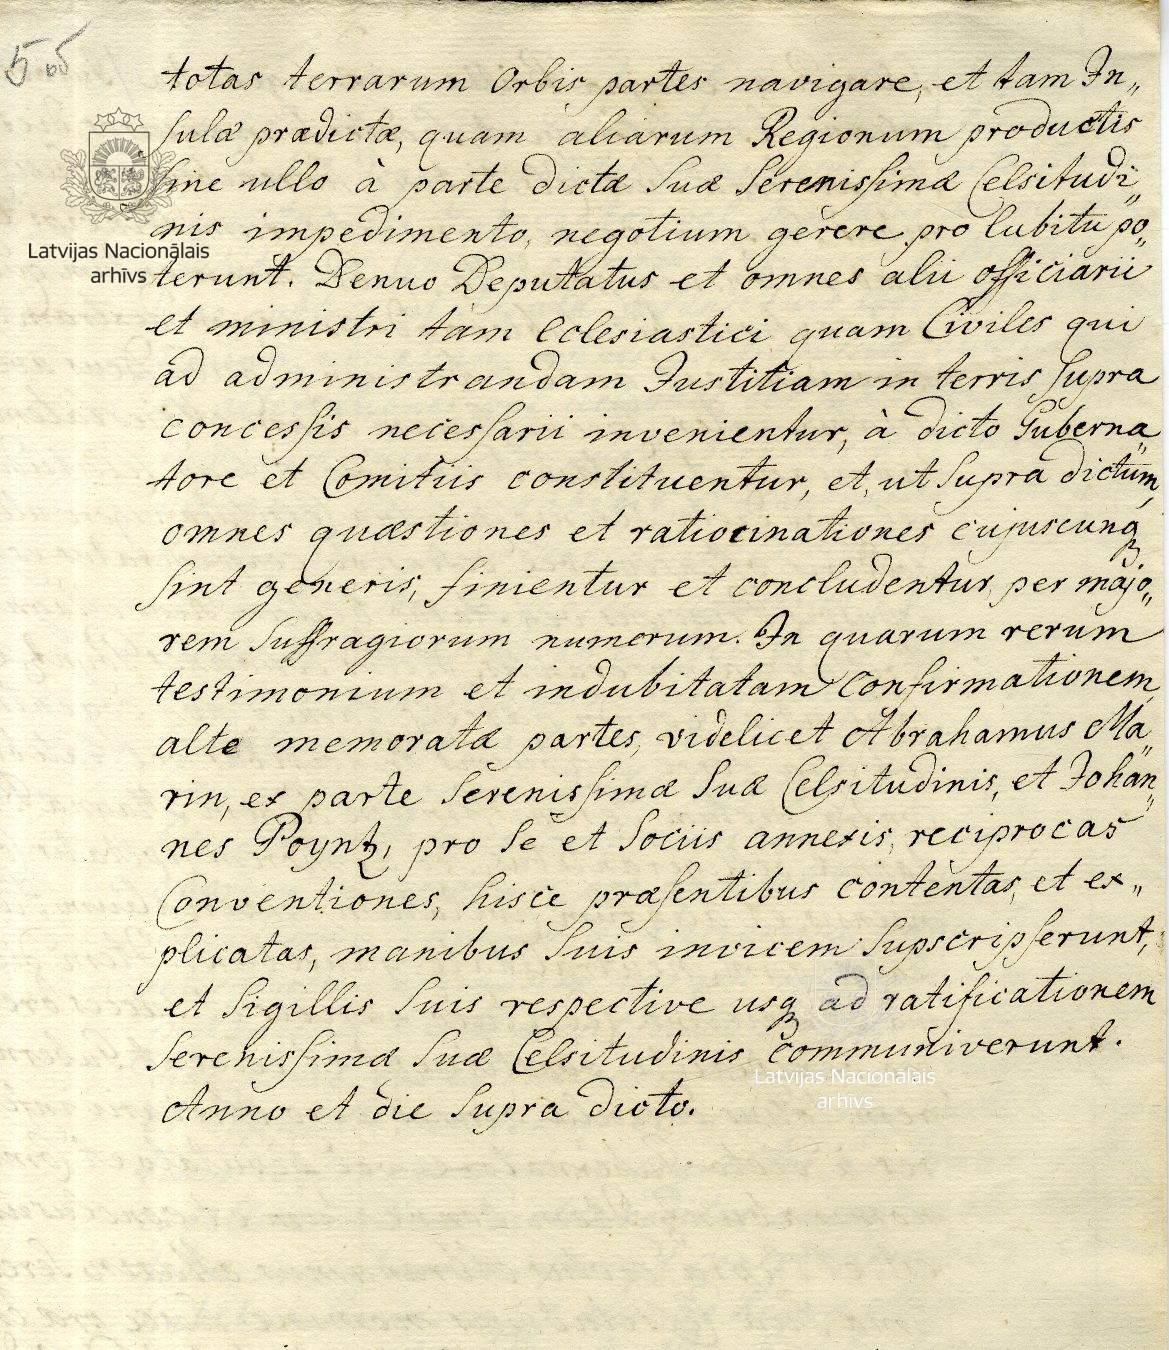 55
totas terrarum Orbis partes navigare, et tam In„
sulæ prædictæ, quam aliarum Regionum productis
sine ullo à parte dictæ Suæ Serenissimæ Celsitudi„
nis impedimento, negotium gerere pro lubitu po„
terunt. Denuo Deputatus et omnes alii officiarii
et ministri tam Eclesiastici quam Civiles qui
ad administrandam Justitiam in terris supra
concessis necessarii invenientur, à dicto Guberna„
tore et Comitiis constituentur, et, ut supra dictum,
omnes quæstiones et ratiocinationes cujuscunq
sint generis, finientur et concludentur per majo„
rem suffragiorum numerum. In quarum rerum
testimonium et indubitatam Confirmationem,
alte memoratæ partes, videlicet Abrahamus Ma„
rin, ex parte Serenissimæ Suæ Celsitudinis, et Johan„
nes Poyntz, pro Se et Sociis annexis, reciprocas
Conventiones, hisce præsentibus contentas, et ex„
plicatas, manibus Suis invicem Supscripserunt,
et Sigillis Suis respective usq ad ratificationem
Serenissimæ Suæ Celsitudinis communiverunt.
Anno et die Supra dicto.
Latvijas Nacionālais
arhīvs
Latvijas Nacionālais
arhīvs